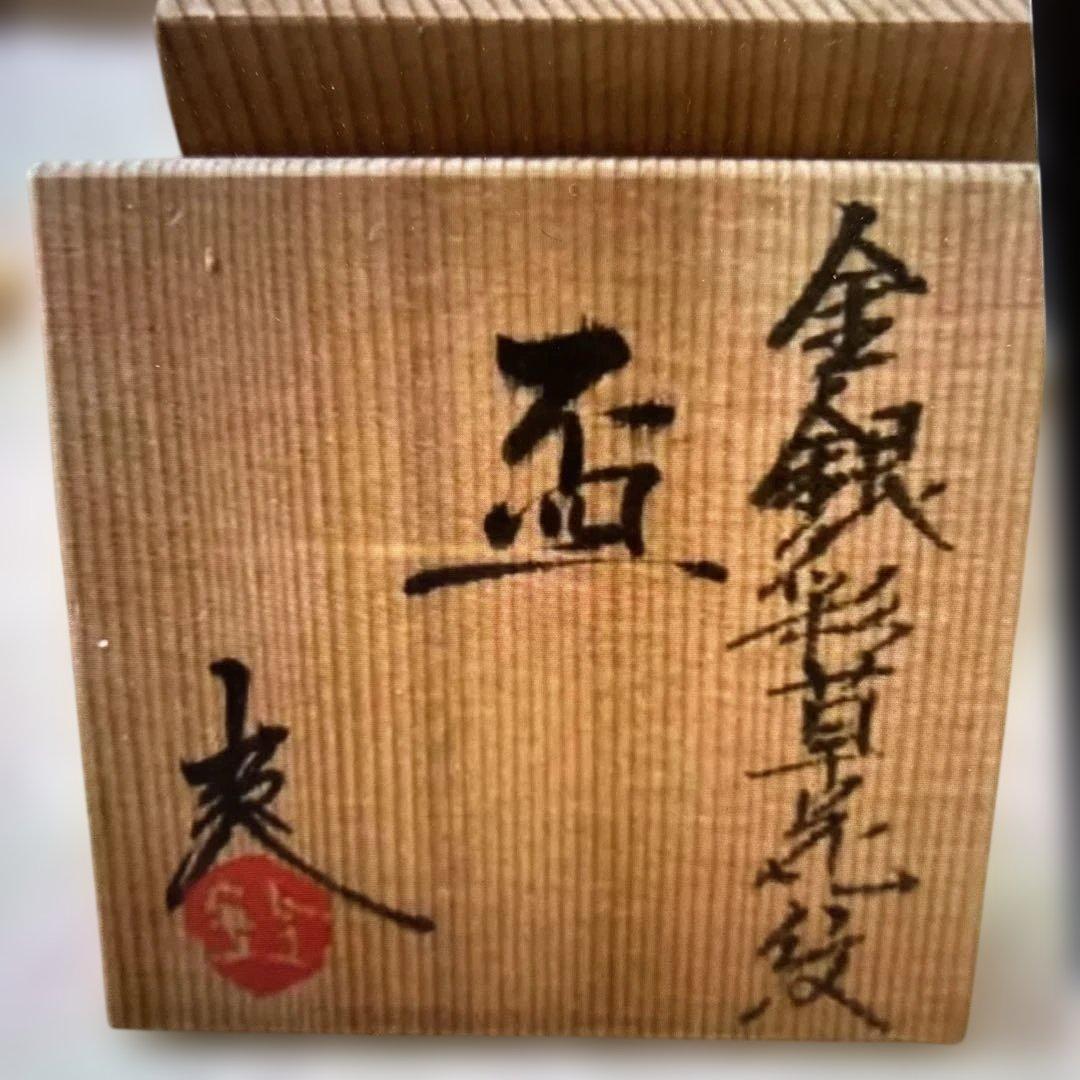 金銀彩草花紋
盃
爽